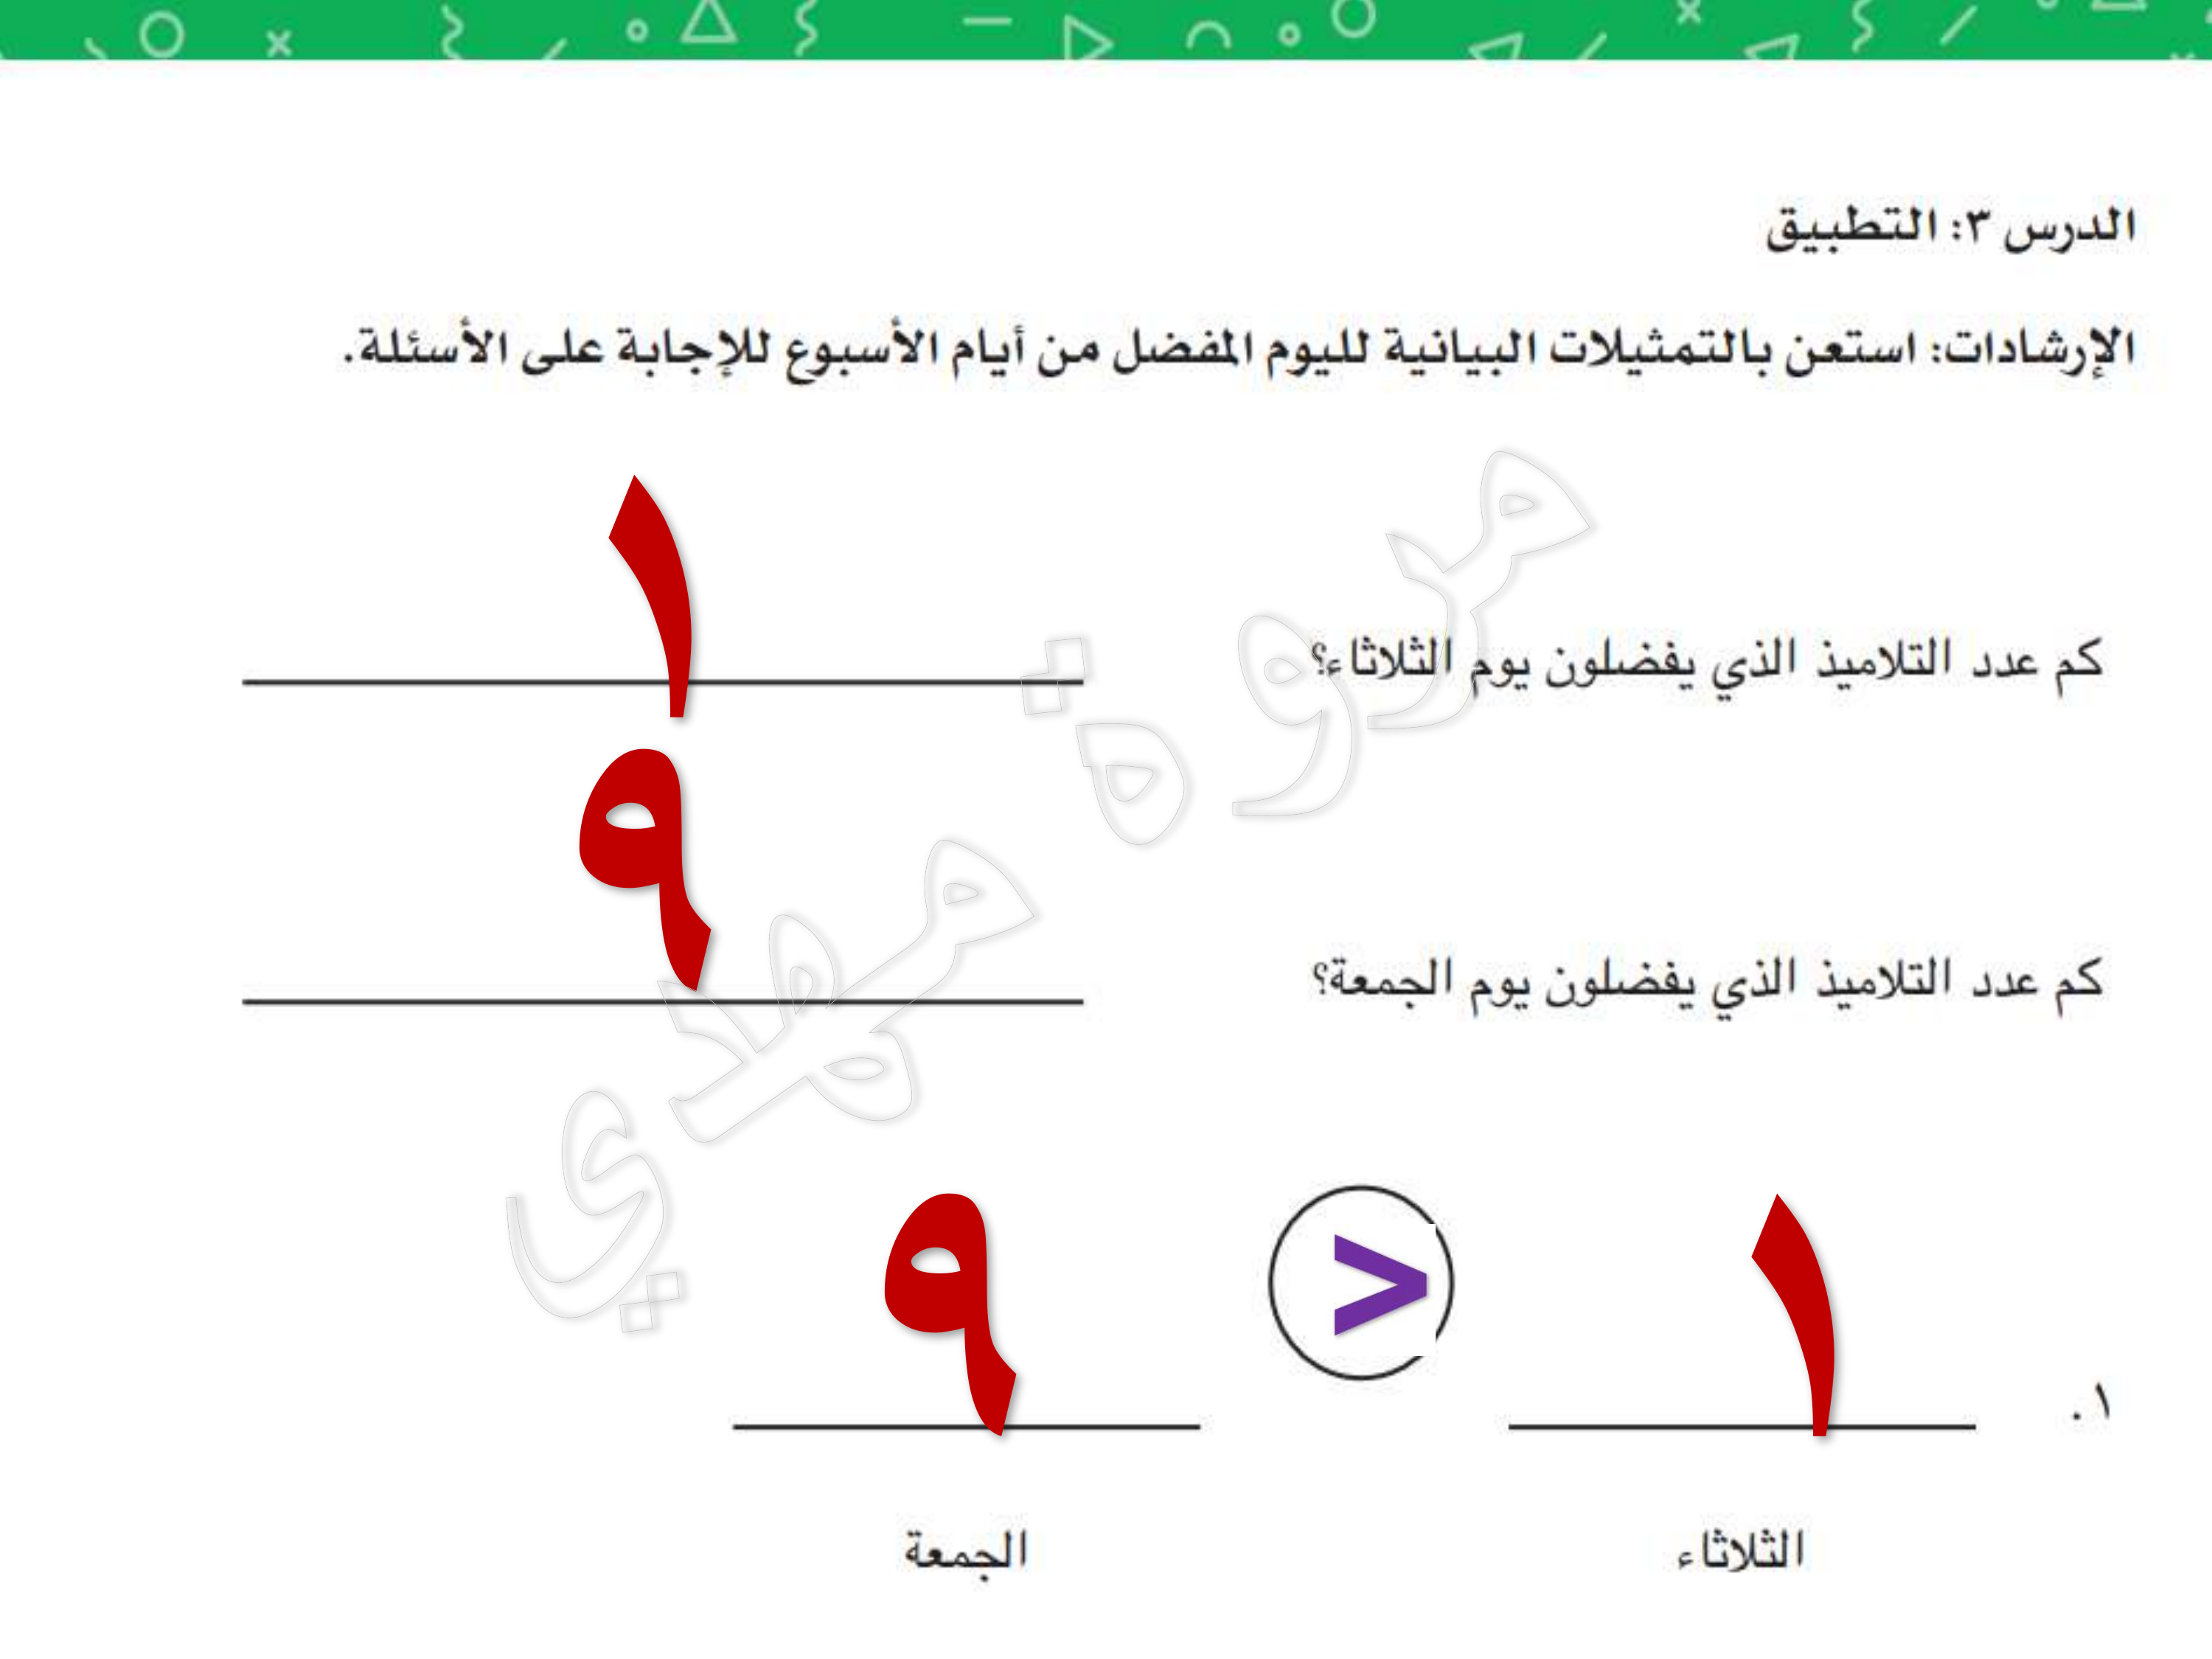 الدرس ٣: التطبيق
الإرشادات: استعن بالتمثيلات البيانية لليوم المفضل من أيام الأسبوع للإجابة على الأسئلة.
كم عدد التلاميذ الذي يفضلون يوم الثلاثاء؟ ١
كم عدد التلاميذ الذي يفضلون يوم الجمعة؟ ٩
١. ١ > ٩
الثلاثاء الجمعة
مروة مهدي